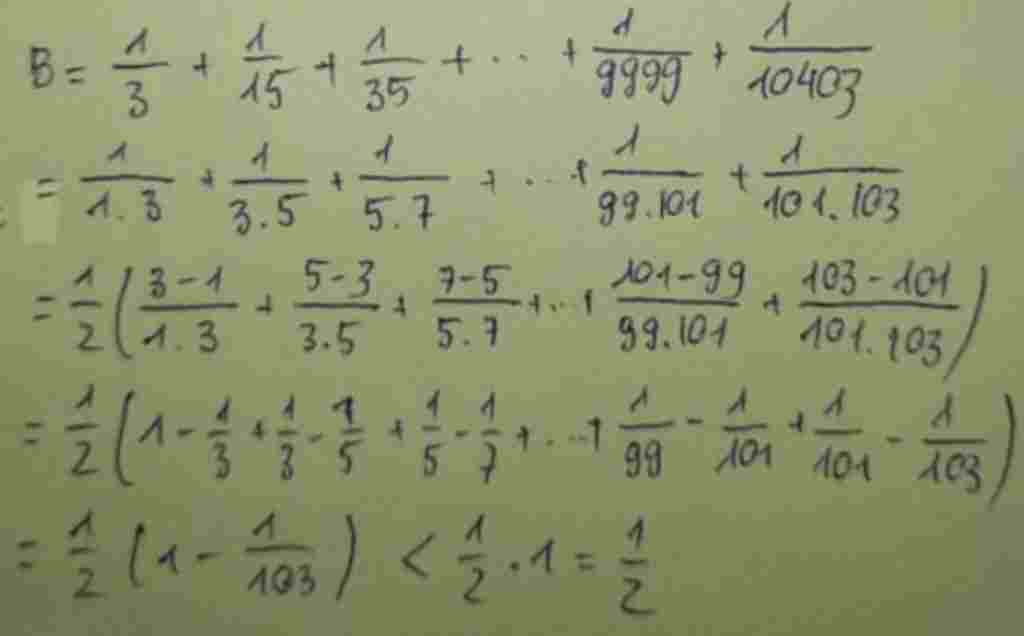 B = 1/3 + 1/15 + 1/35 + ... + 1/9999 + 1/10403
= 1/1.3 + 1/3.5 + 1/5.7 + ... + 1/99.101 + 1/101.103
= 1/2 ( 3-1/1.3 + 5-3/3.5 + 7-5/5.7 + ... + 101-99/99.101 + 103-101/101.103 )
= 1/2 ( 1 - 1/3 + 1/3 - 1/5 + 1/5 - 1/7 + ... + 1/99 - 1/101 + 1/101 - 1/103 )
= 1/2 ( 1 - 1/103 ) < 1/2 . 1 = 1/2